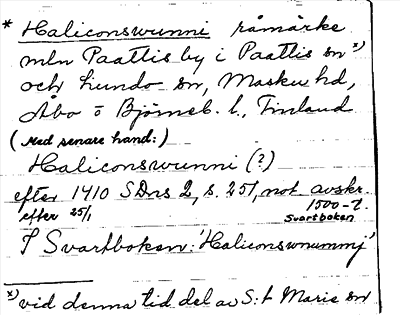 * Haliconswunni råmärke
mln Paattis by i Paattis sn x)
och Lundo sn, Masku hd,
Åbo o Björneb. l., Finland
(Med senare hand:)
Haliconswunni (?)
efter 1410 SDns 2, s. 251, not avskr.
efter 25/1 1500-t.
Svartboken
I Svartboken: 'Haliconswnummj'
x) vid denna tid del av S:t Marie sn